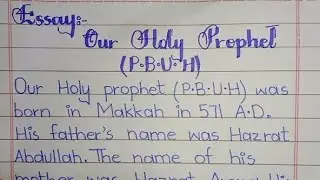 Essay:-
Our Holy Prophet
(P.B.U.H)
Our Holy prophet (P.B.U.H) was
born in Makkah in 571 A.D.
His father's name was Hazrat
Abdullah. The name of his
mother was Hazrat